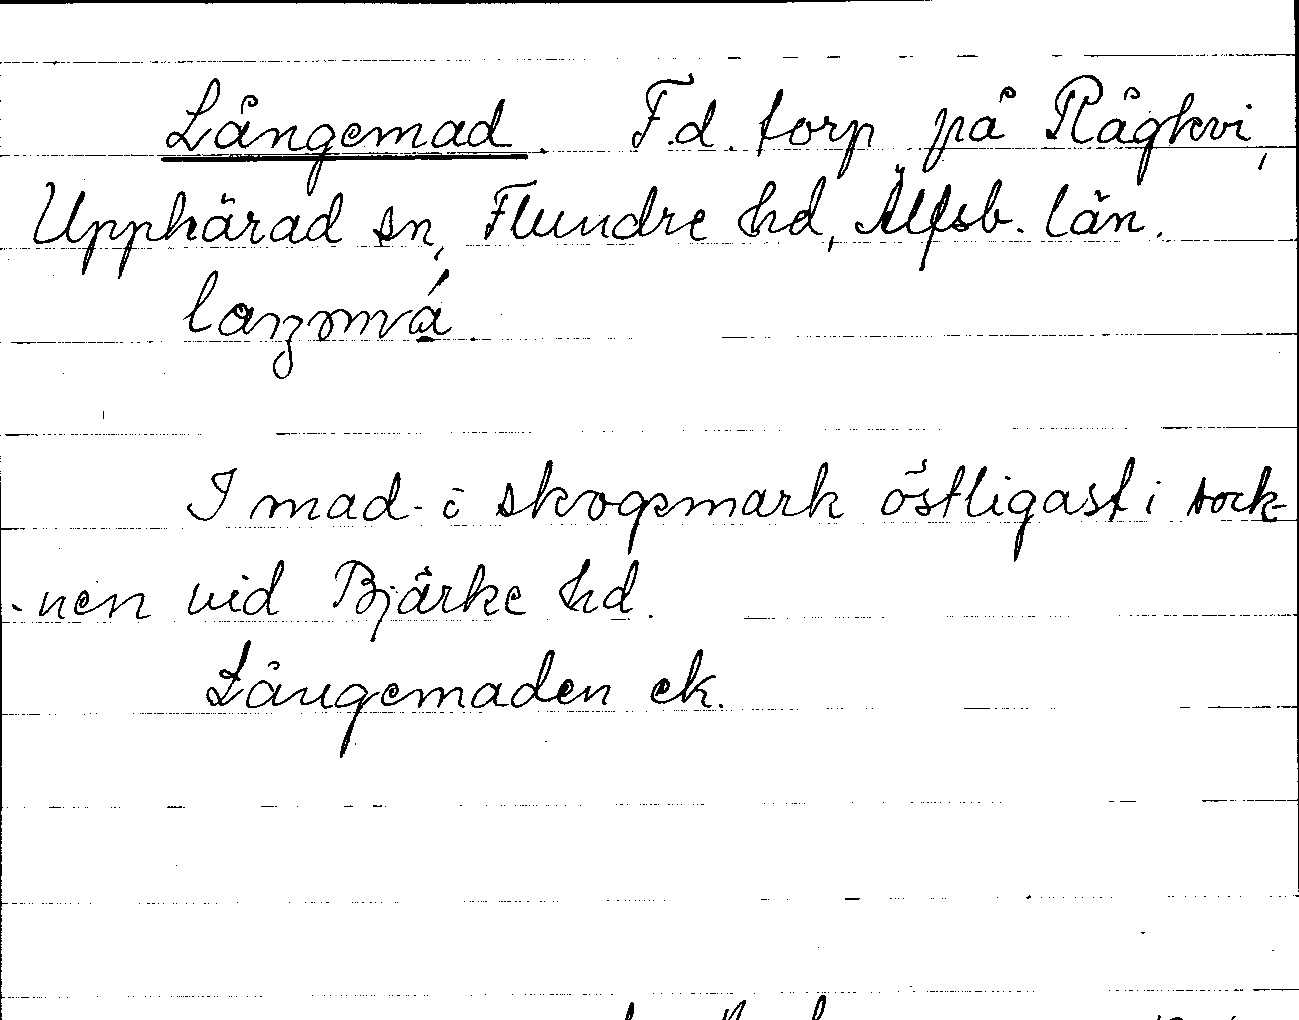 Långemad. F.d. torp på Rågkvi,
Upphärad sn, Flundre hd, Älfsb. län.
I mad i skogsmark östligast i sock-
-nen vid Bjärke hd.
Långemaden ek.